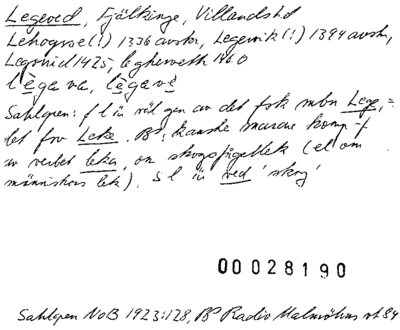 Legeved, Fjälkinge, Villands hd
Lehogwe(!) 1336 avskr, Legewik(!) 1394 avskr,
Legovid 1425, legherveth 1460
lègava, lègavè
Sahlgren: f l är väl gen av det fsk mbn Lege, =
let fov Leke. Bd, kanske snarare komp-f
av verbet leka, om skogsfågellek (el om
människors lek). S l är ved 'skog'
00028190
Sahlgren NoB 1923:128, Bd Radio Malmöhus vt 84